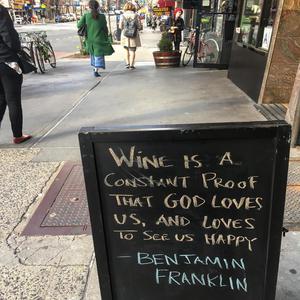 WINE IS A
CONSTANT PROOF
THAT GOD LOVES
US, AND LOVES
TO SEE US HAPPY
- BENJAMIN
FRANKLIN